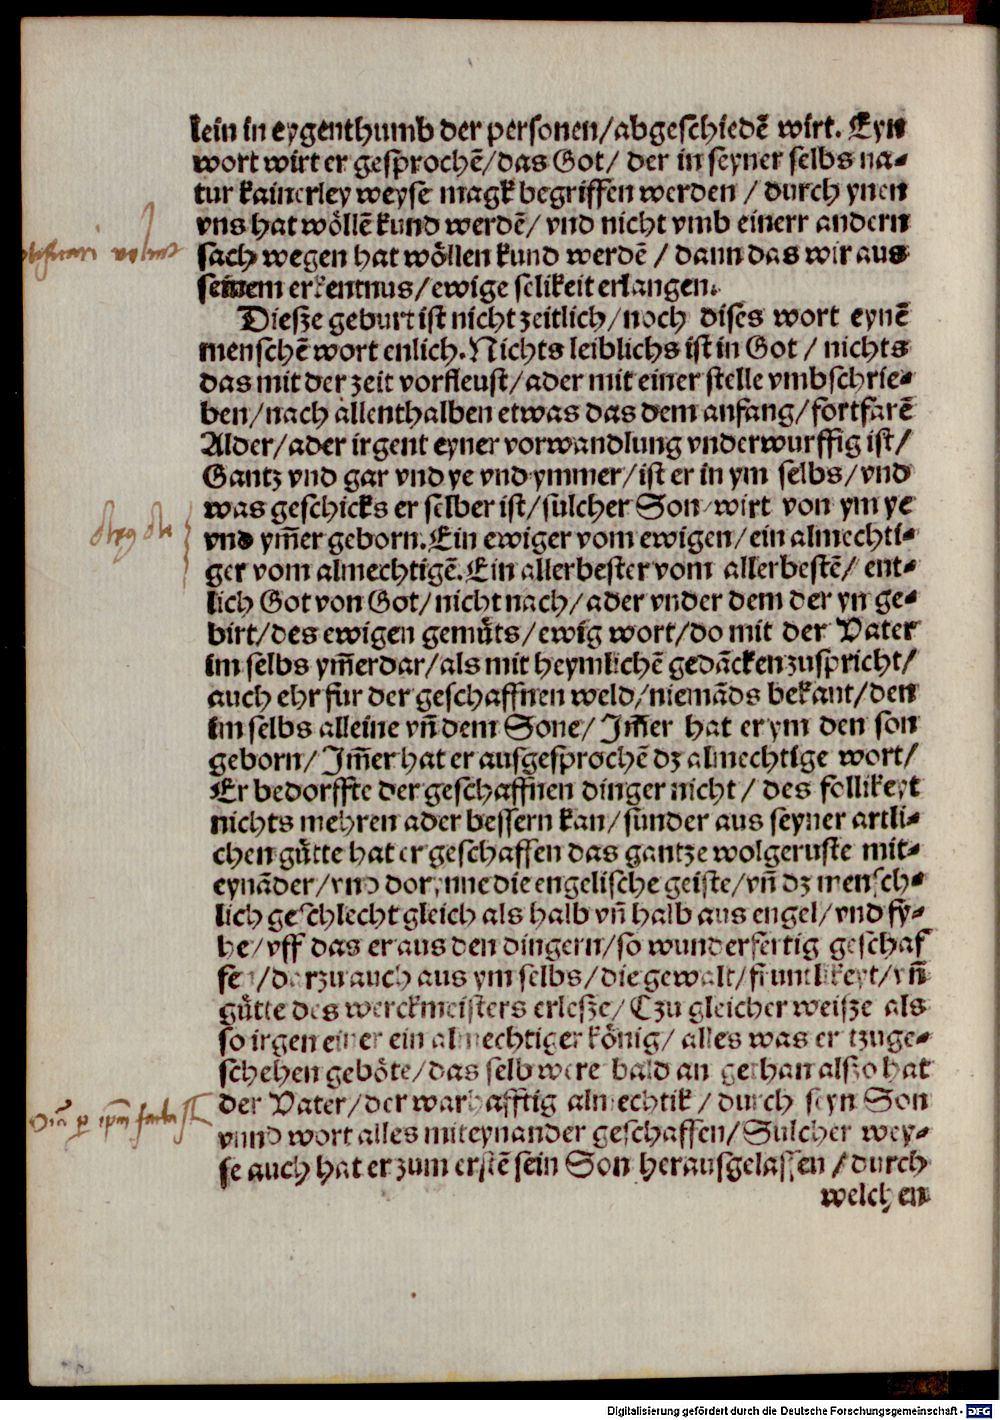 lein in eygenthumb der personen/abgeschiedē wirt. Eyn
wort wirt er gesprochē/das Got/ der in seyner selbs na⸗
tur kainerley weyse magk begriffen werden / durch ynen
vns hat wöllē kund werdē/ vnd nicht vmb einerr andern
sach wegen hat wöllen kund werdē / dann das wir aus
seinem erkentnus/ewige selikeit erlangen.
Diesze geburt ist nicht zeitlich/noch dises wort eynē
menschē wort enlich. Nichts leiblichs ist in Got / nichts
das mit der zeit vorfleust/ader mit einer stelle vmbschrie⸗
ben/nach allenthalben etwas das dem anfang/fortfarē
Alder/ader irgent eyner vorwandlung vnderwurffig ist/
Gantz vnd gar vnd ye vnd ymmer/ist er in ym selbs/vnd
was geschicks er selber ist/sulcher Son wirt von ym ye
vnd ym̄er geborn. Ein ewiger vom ewigen/ein almechti⸗
ger vom almechtigē. Ein allerbester vom allerbestē/ ent⸗
lich Got von Got/nicht nach/ader vnder dem der yn ge⸗
birt/des ewigen gemüts/ewig wort/do mit der Vater
im selbs ym̄erdar/als mit heymlichē gedācken zuspricht/
auch ehr für der geschaffnen weld/niemāds bekant/den
im selbs alleine vn̄ dem Sone/ Im̄er hat er ym den son
geborn/ Im̄er hat er ausgesprochē dz almechtige wort/
Er bedorffte der geschaffnen dinger nicht / des follikeyt
nichts mehren ader bessern kan/sunder aus seyner artli⸗
chen gütte hat er geschaffen das gantze wolgeruste mit⸗
eynāder/vnd dorynne die engelische geiste/vn̄ dz mensch⸗
lich geschlecht gleich als halb vn̄ halb aus engel/vnd fy⸗
he/vff das er aus den dingern/so wunderfertig geschaf
fen/darzu auch aus ym selbs/die gewalt/fruntlikeyt/vn̄
gütte des werckmeisters erlesze/ Czu gleicher weisze als
so irgen einer ein almechtiger könig/ alles was er tzuge⸗
schehen geböte/das selb were bald an gethan alszo hat
der Vater/der warhafftig almechtik / durch seyn Son
vnnd wort alles miteynander geschaffen/Sulcher wey⸗
se auch hat er zum erstē sein Son herausgelassen / durch
welchen
Digitalisierung gefördert durch die Deutsche Forschungsgemeinschaft - DFG